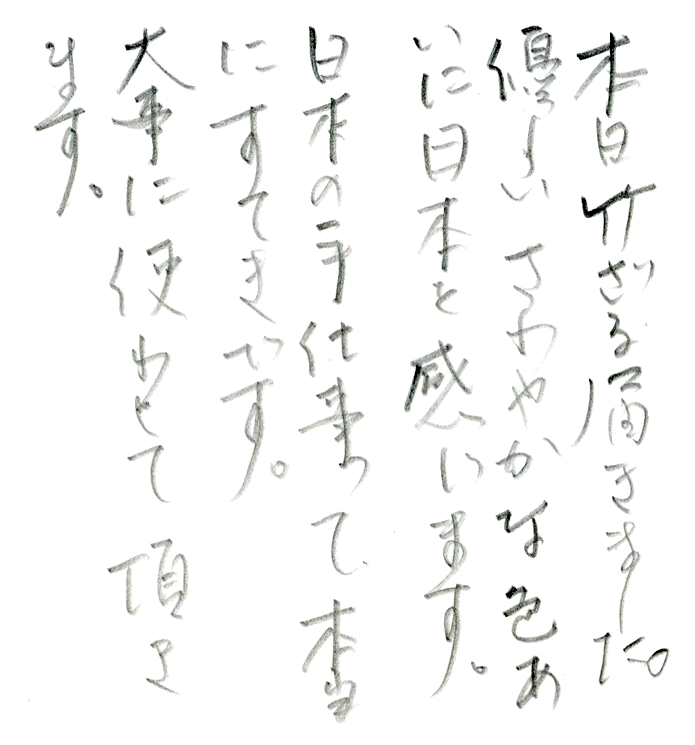 本日竹ざる届きました。
優しい さわやかな色あ
いに日本を感じます。
日本の手仕事って、本当
にすてきです。
大事に使わせて 頂き
ます。